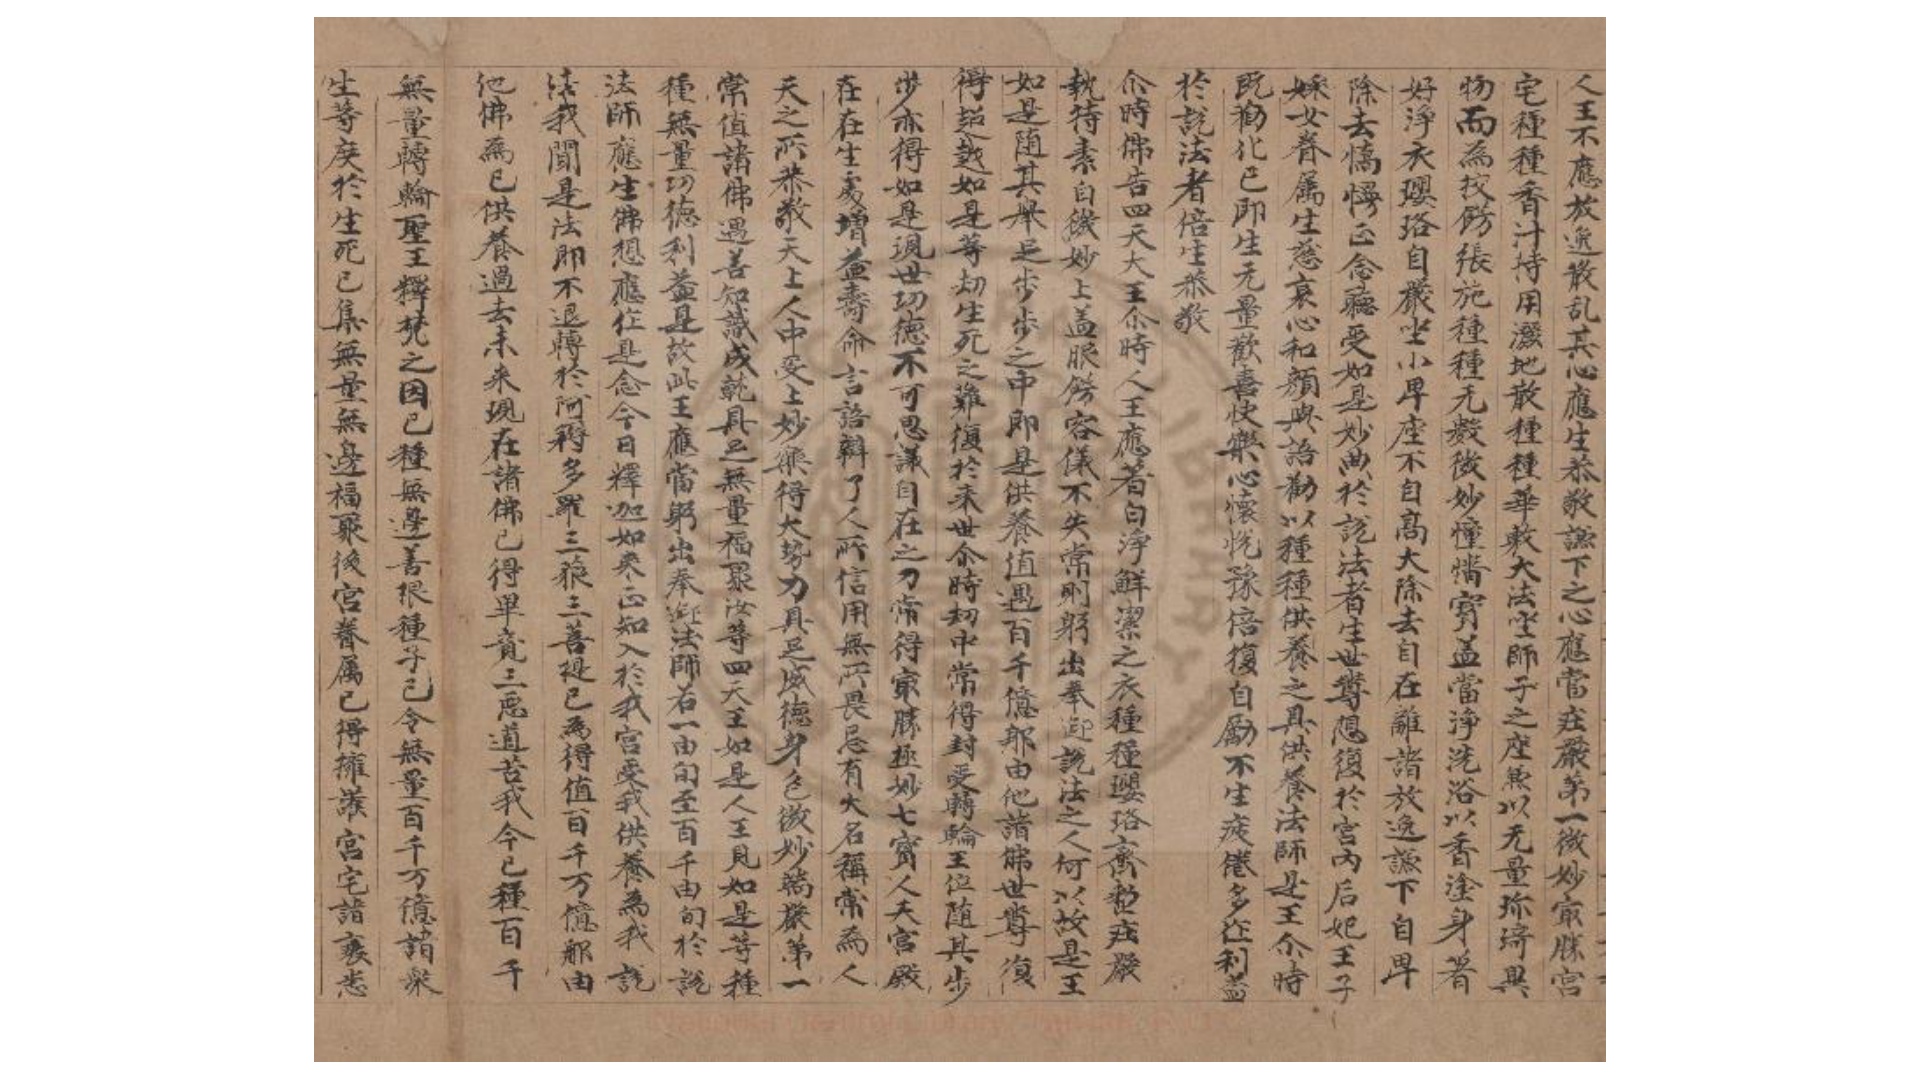 人王不應放逸散乱其心應生恭敬謙下之心應當庄嚴第一微妙㝡勝宮
宅種種香汁持用灑地散種種華敷大法坐師子之座兼以无量珎琦異
物而為挍飾張施種種无數微妙憧幡寶盖當淨洗浴以香塗身著
好淨衣瓔珞自嚴坐小卑座不自高大除去自在離諸放逸謙下自卑
除去憍慢正念聽受如是妙典於說法者生世尊想復於宮內后妃王子
婇女眷属生慈哀心和顏與語勸以種種供養之具供養法師是王尒時
既勸化已即生无量歡喜快樂心懷悅豫倍復自勵不生疲惓多作利益
於說法者倍生恭敬
尒時佛告四天大王尒時人王應著白淨鮮潔之衣種種瓔珞齊整庄嚴
執持素白微妙上盖服飾容儀不失常則躬出奉迎說法之人何以故是王
如是随其舉足步步之中即是供養值遇百千億那由他諸佛世尊復
得超越如是等劫生死之難復於來世尒時劫中常得封受轉輪王位随其步
步亦得如是現世功德不可思議自在之力常得㝡勝極妙七寳人天宮殿
在在生處增益壽命言語辯了人所信用無所畏忌有大名稱常為人
天之所恭敬天上人中受上妙樂得大势力具足威德身色微妙端嚴第一
常值諸佛遇善知識成就具足無量福聚汝等四天王如是人王見如是等種
種無量功德利益是故此王應當躬出奉迎法師若一由旬至百千由旬於說
法師應生佛想應作是念今日釋迦如来正知入於我宮受我供養為我說
法我聞是法即不退轉於阿耨多羅三藐三菩提已為得值百千万億那由
他佛為已供養過去未来現在諸佛已得畢竟三惡道苦我今已種百千
無量轉輪聖王釋梵之因已種無邊善根種子已令無量百千万億諸眾
生等度於生死已集無量無邊福聚後宮眷属已得擁護宮宅諸衰悉